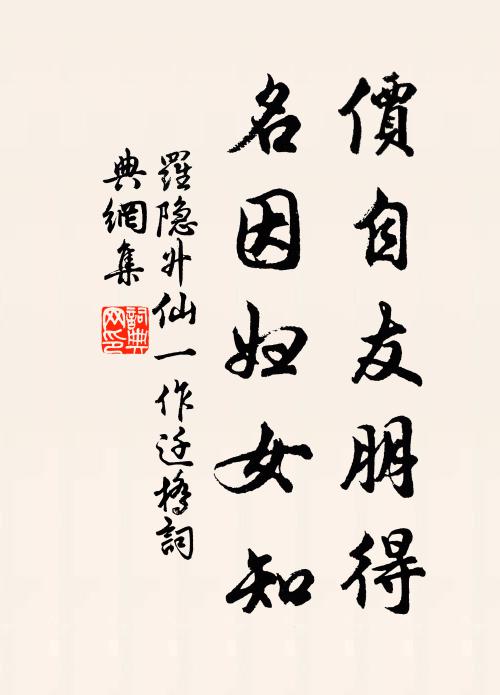 價自友朋得
名因婦女知
羅隐外仙一作迁橋詞
典網集
詞典网印